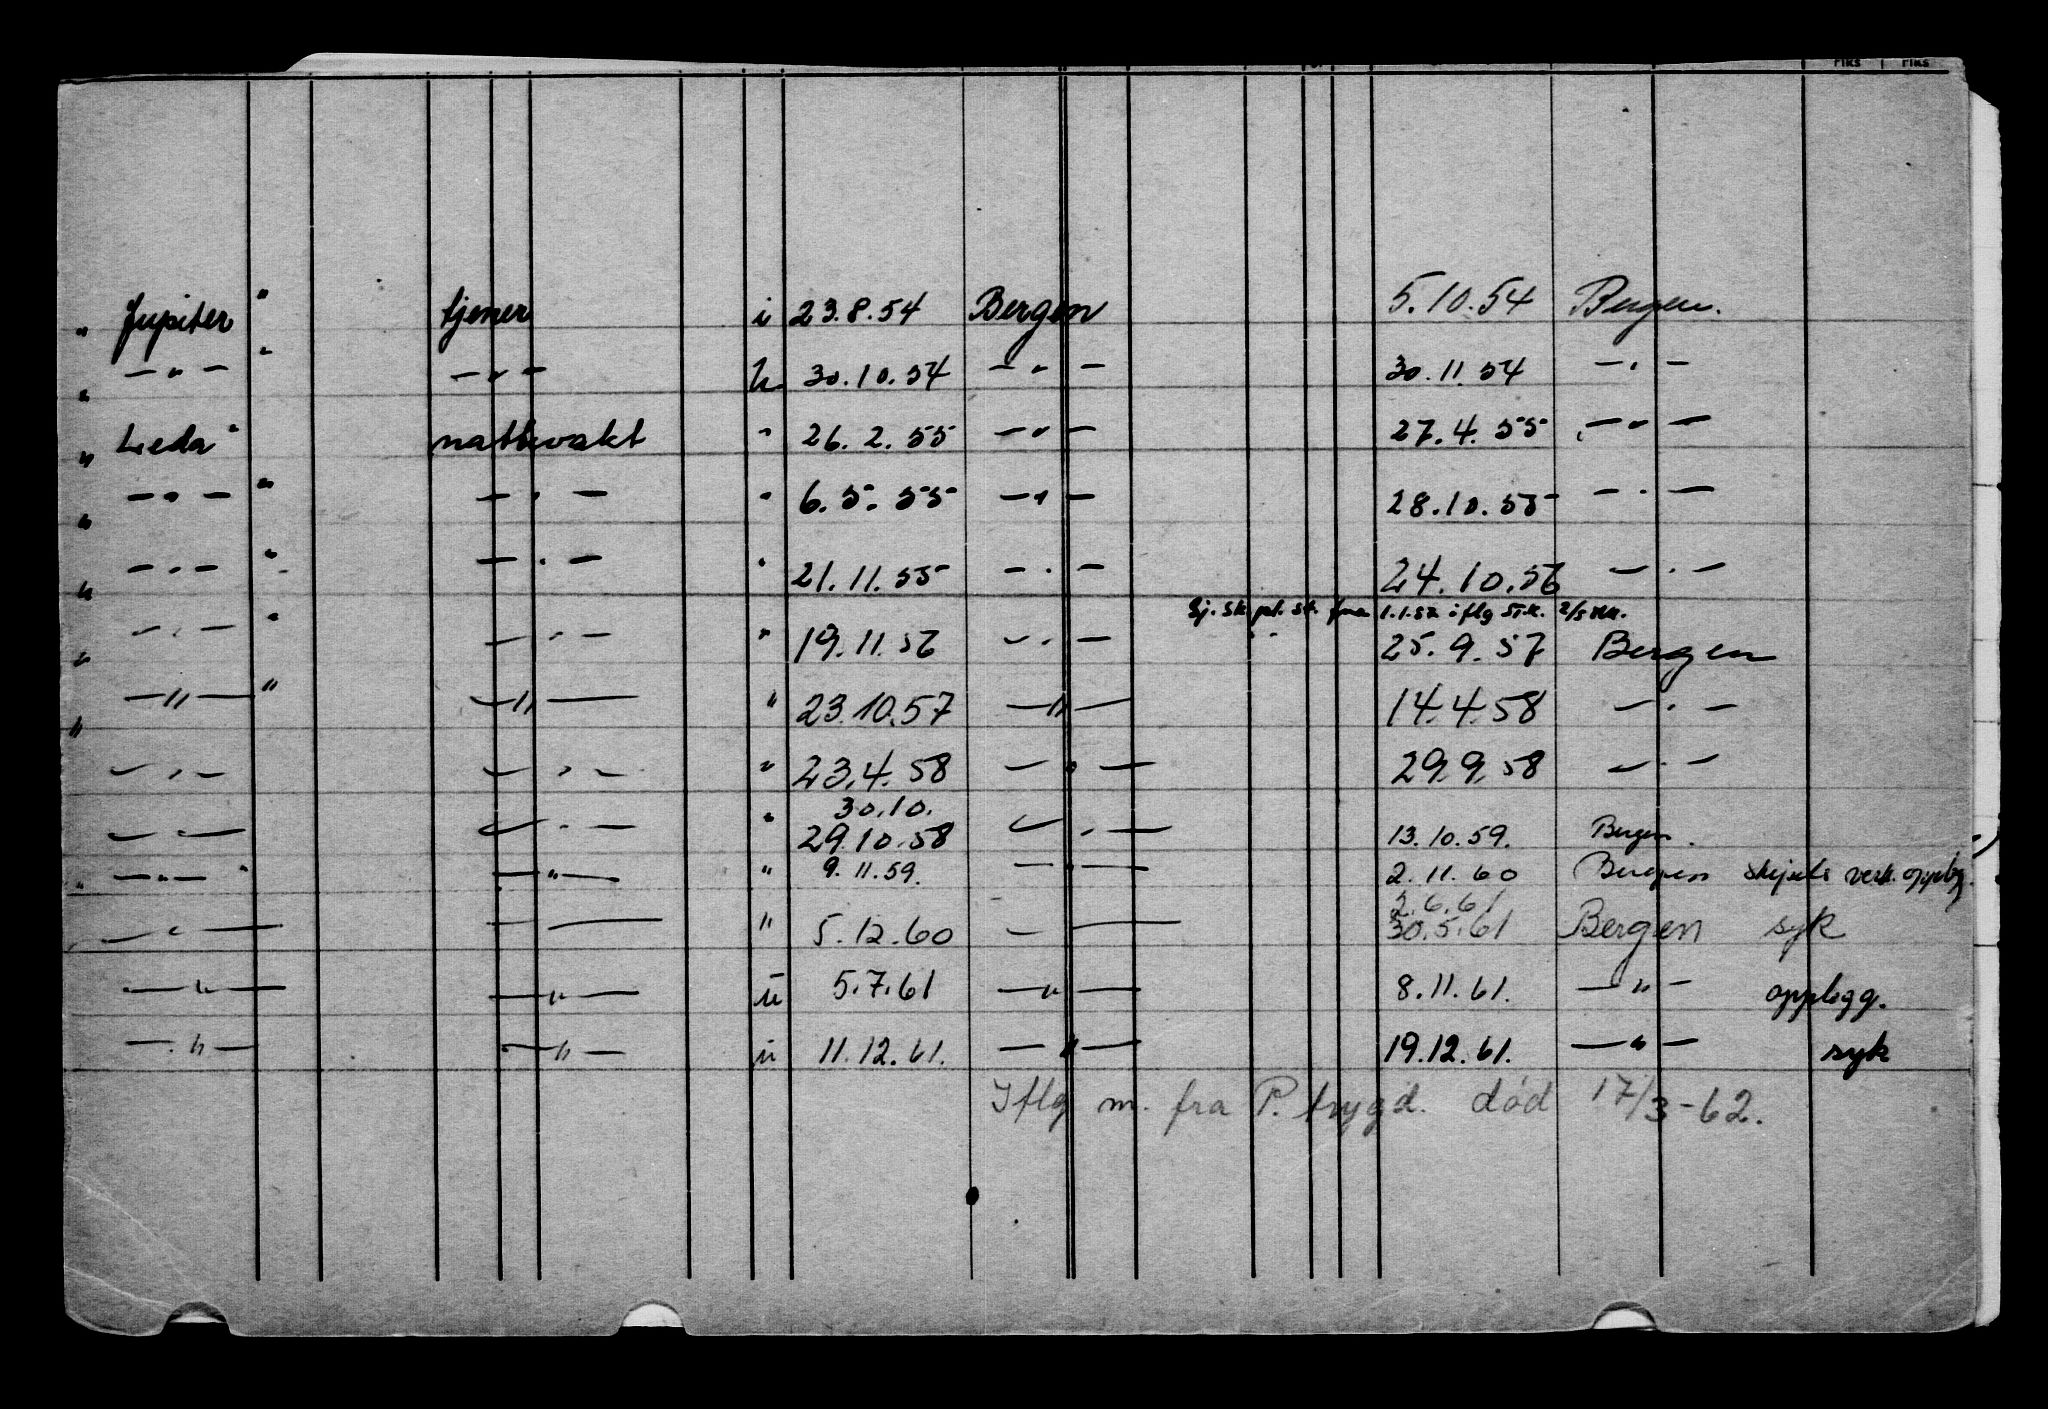 Fiks Fiks
" Jupiter " tjener i 23.8.54 Bergen 5.10.54 Bergen.
" — " — " — " — u 30.10.54 — " — 30.11.54 — " —
" Leda " nattvakt " 26.2.55 — " — 27.4.55 — " —
" — " — " — " — " 6.5.55 — " — 28.10.55 — " —
" — " — " — " — " 21.11.55 — " — 24.10.56 — " —
fra 1.1.57 iflg
" — " — " — " — " 19.11.56 — " — 25.9.57 Bergen
" — " — " — " — " 23.10.57 — " — 14.4.58 — " —
— " — — " — " 23.4.58 — " — 29.9.58 — " —
30.10.
— " — — " — " 29.10.58 — " — 13.10.59. Bergen.
" — " — " — " — " 9.11.59. — " — 2.11.60 Bergen
2.6.61
— " — — " — " 5.12.60 — " — 30.5.61 Bergen syk
— " — — " — u 5.7.61 — " — 8.11.61. — " — opplegg.
— " — — " — u 11.12.61. — " — 19.12.61. — " — syk
Iflg m. fra P. trygd. död 17/3-62.